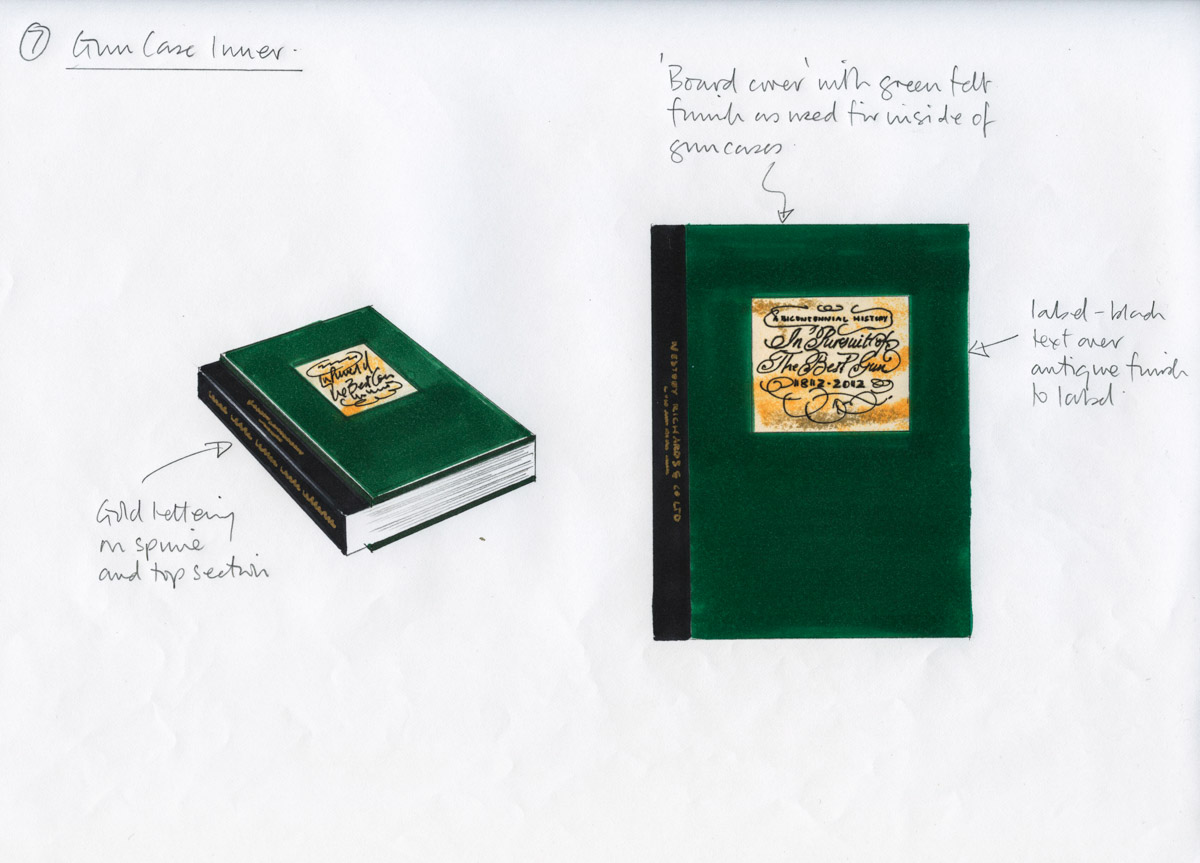 7 Gun Case Inner.
'Board cover' with green felt
finish as used for inside of
gun cases.
A BICENTENNIAL HISTORY
In Pursuit of
The Best Gun
1812-2012
WESTLEY RICHARDS & CO LTD
label - black
text over
antique finish
to label.
In Pursuit of
the Best Gun
Gold lettering
on spine
and top section